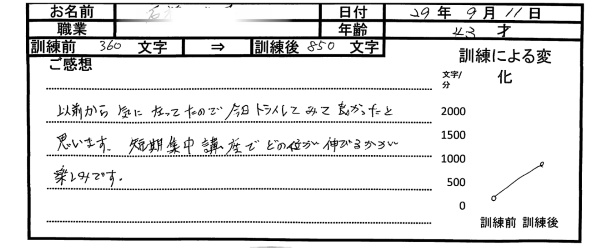 お名前 日付 29年9月11日
職業 年齢 43才
訓練前 360 文字 ⇒ 訓練後 850 文字
ご感想
以前から気になってたので今日トライしてみて良かったと
思います。短期集中講座でどの位が伸びるかが
楽しみです。
訓練による変化
文字/分
2000
1500
1000
500
0
訓練前 訓練後